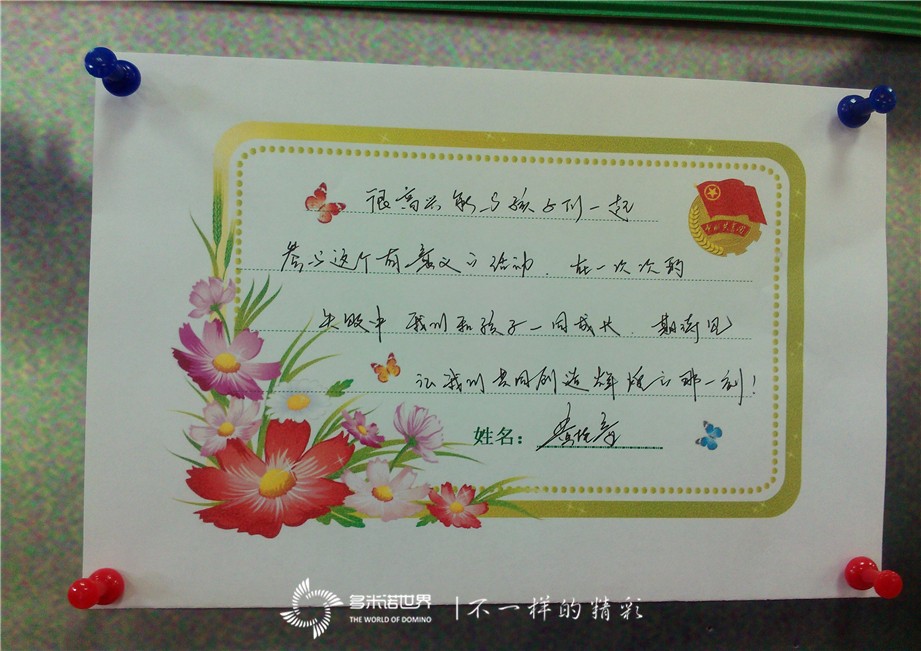 很高兴能与孩子们一起
参与这个有意义的活动。在一次次的
失败中我们和孩子一同成长。期待见
证我们共同创造辉煌的那一刻!
姓名:
多米诺世界
THE WORLD OF DOMINO
不一样的精彩